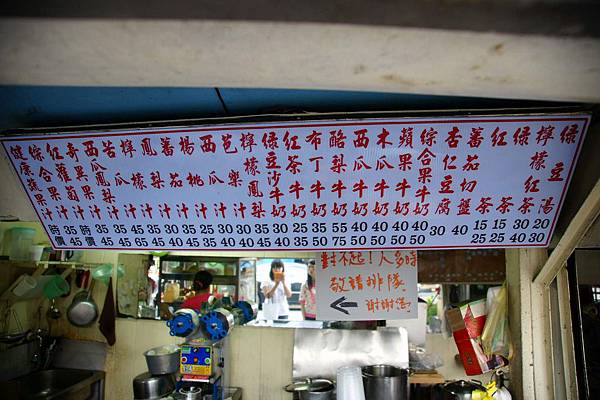 健康蔬果汁 時價
綜合果汁 35 45
紅蘿蔔汁 35 45
奇異果汁
西瓜汁
苦瓜汁
檸檬汁
鳳梨汁 35 45
蕃茄汁 35 45
楊桃汁 35 45
西瓜汁 25 35
芭樂汁 30 40
檸檬鳳梨 30 40
綠豆沙牛奶 35 45
紅茶牛奶 30 40
布丁牛奶 25 35
酪梨牛奶
西瓜牛奶 40 50
木瓜牛奶 40 50
蘋果牛奶 40 50
綜合果牛奶 40 50
杏仁豆腐 30
蕃茄切盤 40
紅茶 15 25
綠茶 15 25
檸檬紅茶 30 40
綠豆湯 20 30
對不起!人多時
敬請排隊
謝謝您